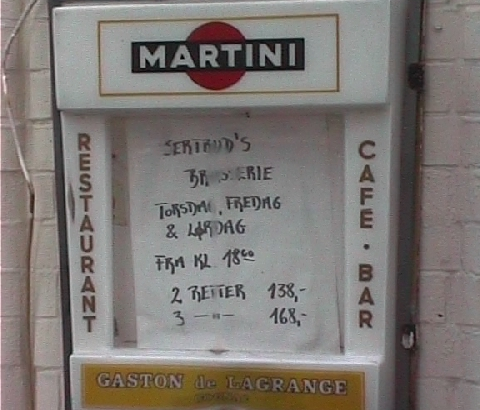 MARTINI
RESTAURANT
GERTRUD'S
BRASSERIE
TORSDAG, FREDAG
& LØRDAG
FRA KL 18⁰⁰
2 RETTER 138,-
3 —"— 168,-
CAFE · BAR
GASTON de LAGRANGE